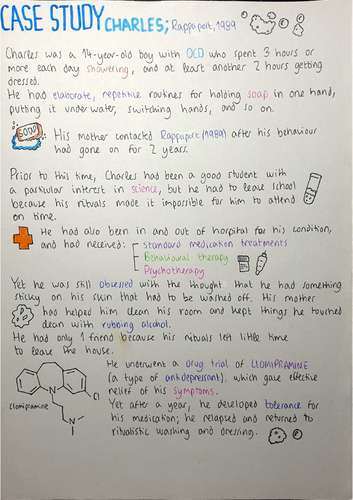 CASE STUDY CHARLES; Rappaport, 1989
Charles was a 14-year-old boy with OCD who spent 3 hours or
more each day showering, and at least another 2 hours getting
dressed.
He had elaborate, repetitive routines for holding soap in one hand,
putting it under water, switching hands, and so on.
SOAP
His mother contacted Rappaport (1989) after his behaviour
had gone on for 2 years.
Prior to this time, Charles had been a good student with
a particular interest in science, but he had to leave school
because his rituals made it impossible for him to attend
on time.
He had also been in and out of hospital for his condition,
and had received: standard medication treatments
Behavioural therapy
Psychotherapy
Yet he was still obsessed with the thought that he had something
sticky on his skin that had to be washed off. His mother
had helped him clean his room and kept things he touched
clean with rubbing alcohol.
He had only 1 friend because his rituals left little time
to leave the house.
He underwent a drug trial of CLOMIPRAMINE
(a type of antidepressant), which gave effective
relief of his symptoms.
Yet after a year, he developed tolerance for
his medication; he relapsed and returned to
ritualistic washing and dressing.
N
Cl
N
clomipramine